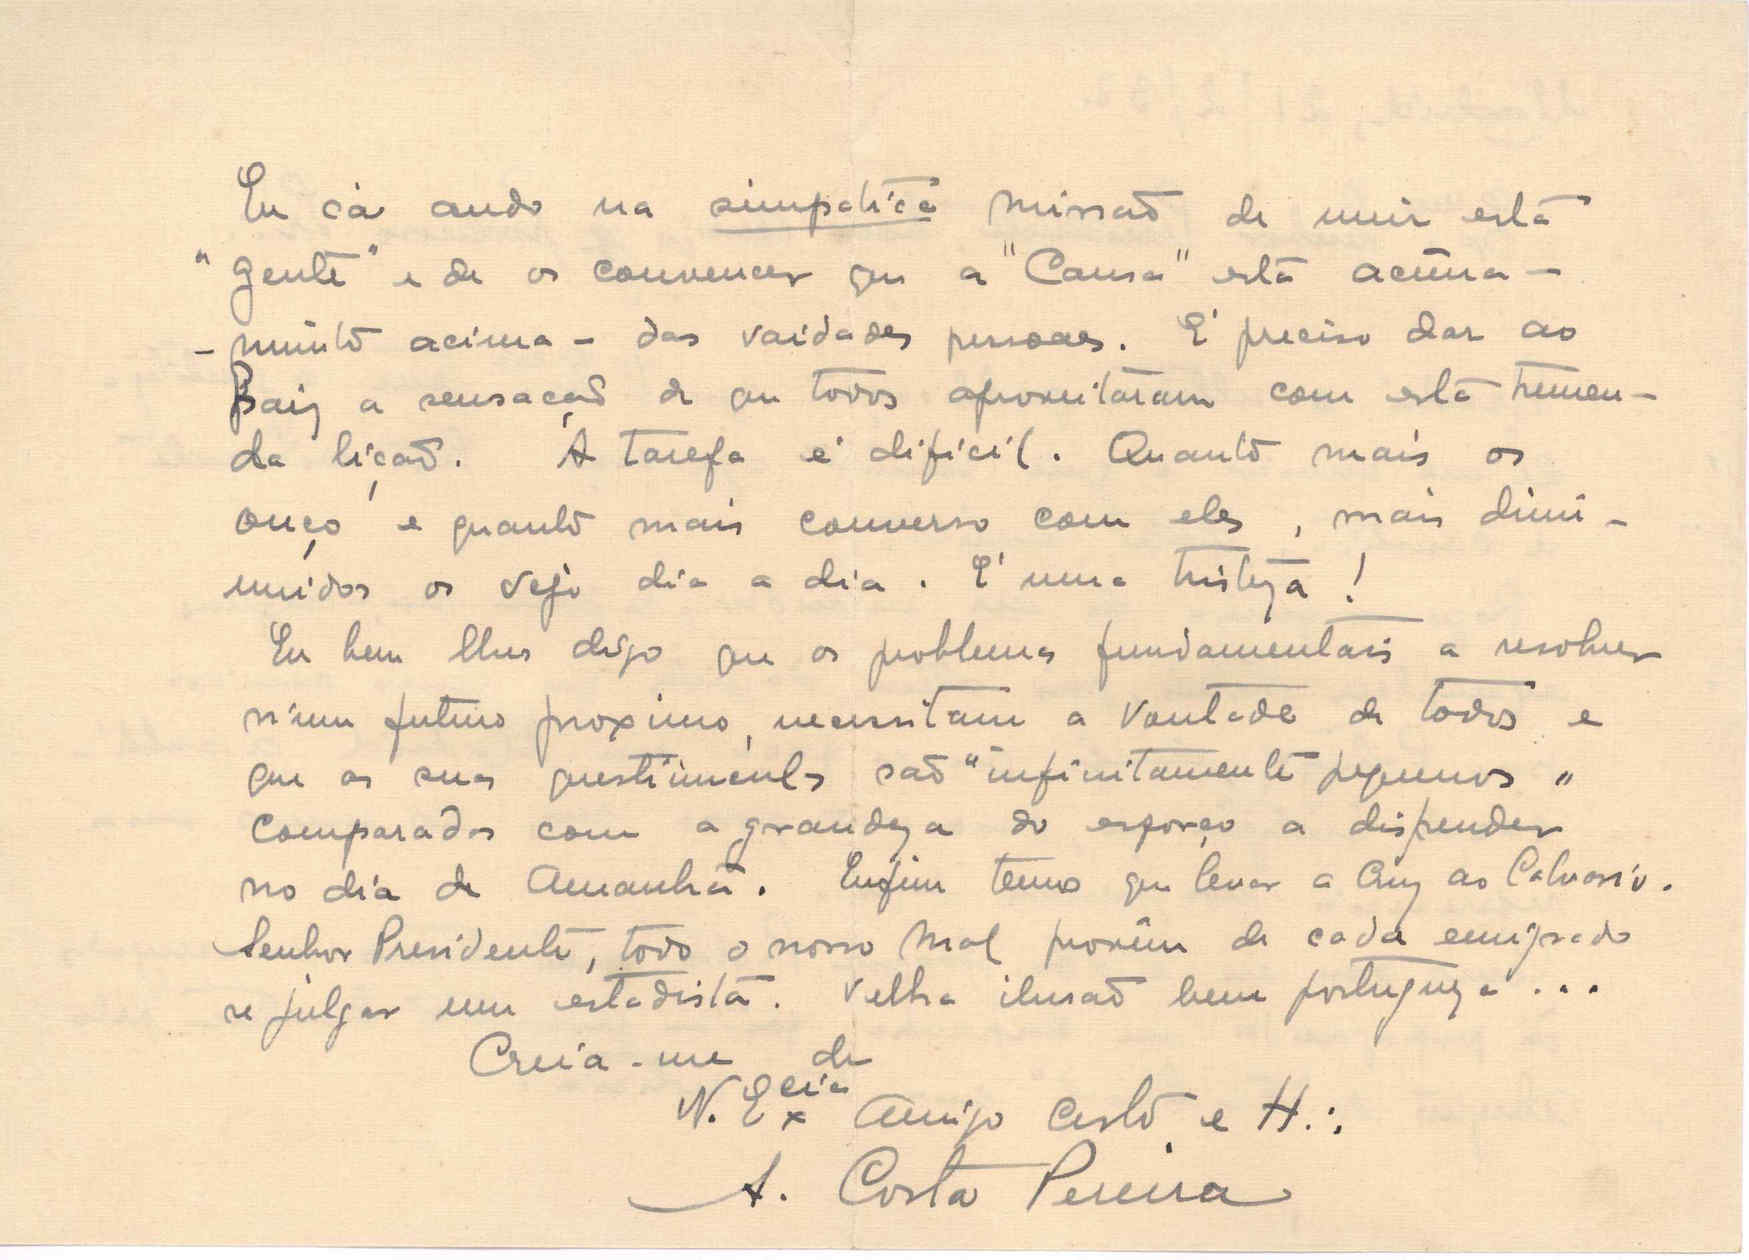 Eu cá ando na simpatica missaõ de unir esta
"gente" e de os convencer que a "Causa" está acima -
- muito acima - das vaidades pessoaes. É preciso dar ao
Paiz a sensaçaõ de que todos aproveitaram com esta tremen-
da liçaõ. A tarefa é dificil. Quanto mais os
ouço e quanto mais converso com eles, mais dimi-
nuidos os vejo dia a dia. É uma tristeza!
Eu bem lhes digo que os problemas fundamentais a resolver
n'um futuro proximo, necessitam a vontade de todos e
que as suas questiunculas saõ "infinitamente pequenos"
comparados com a grandeza do esforço a dispender
no dia de Amanhã. Enfim temos que levar a Cruz ao Calvario.
Senhor Presidente, todo o nosso mal provêm de cada emigrado
se julgar um estadista. Velha ilusaõ bem portugueza...
Creia-me de
V. Excia Amigo certo e H∴
A. Costa Pereira